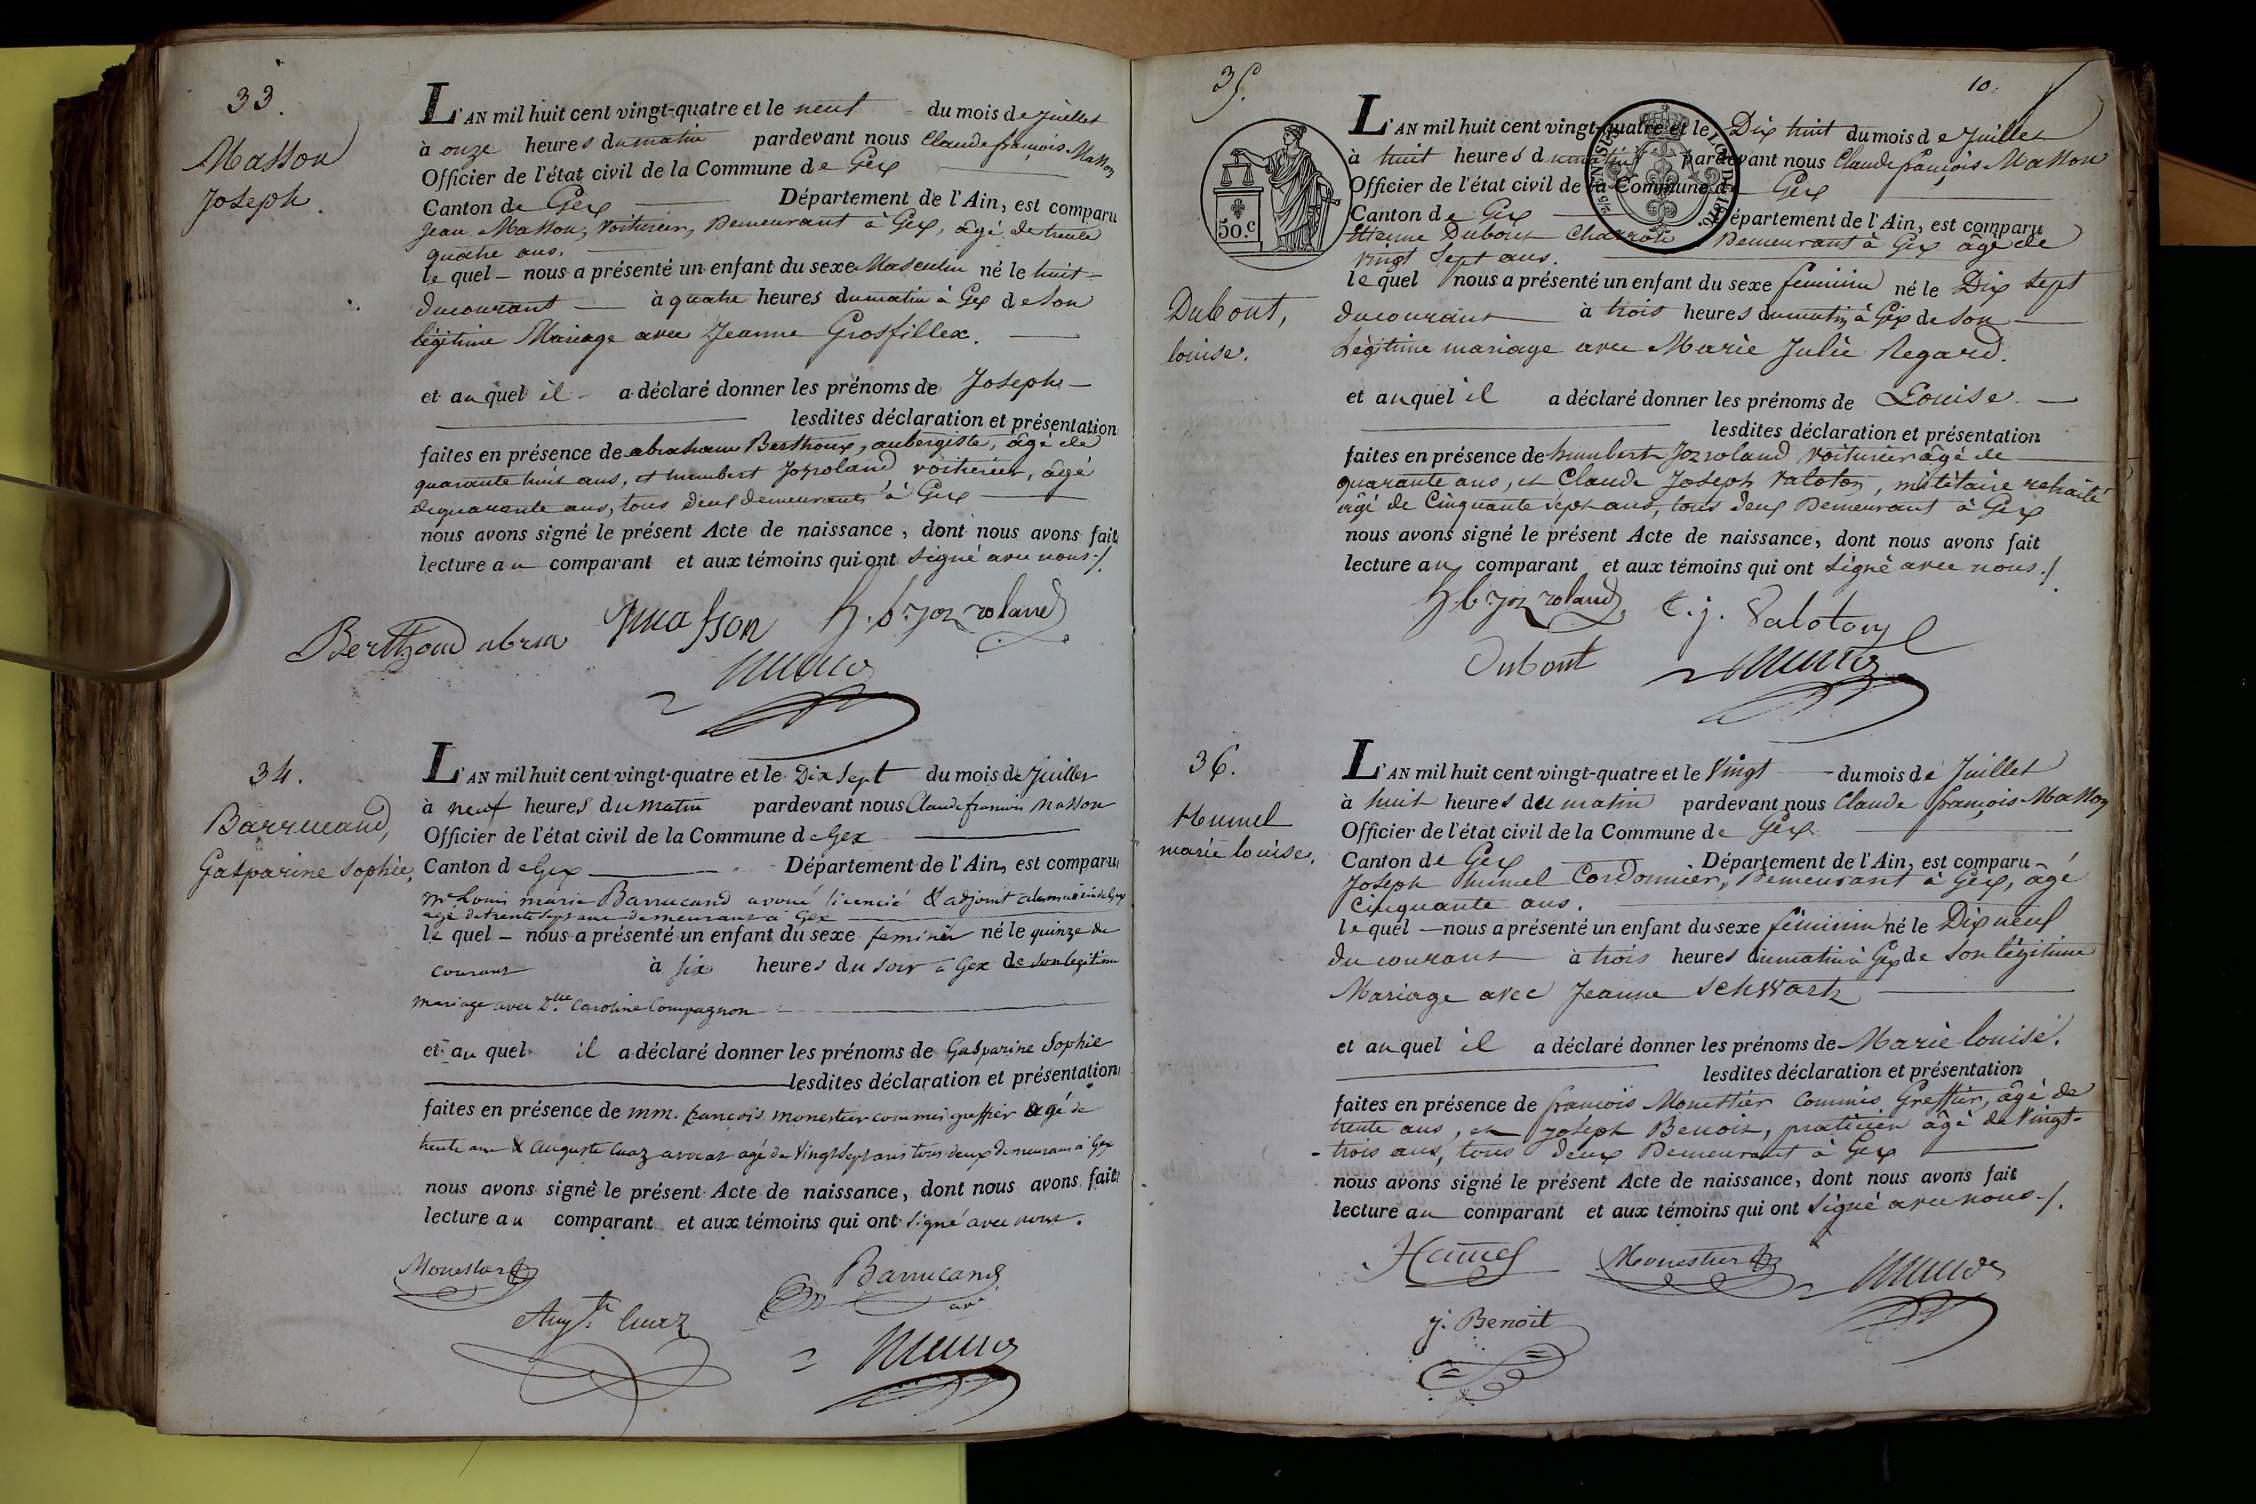 33.
Masson
Joseph.
L'AN mil huit cent vingt-quatre et le neuf du mois de Juillet
à onze heures du matin pardevant nous Claude françois Masson
Officier de l'état civil de la Commune de Gex
Canton de Gex Département de l'Ain, est comparu
Jean Masson, voiturier, Demeurant à Gex, âgé de trente
quatre ans.
le quel nous a présenté un enfant du sexe Masculin né le huit
du courant à quatre heures du matin à Gex de son
légitime Mariage avec Jeanne Grosfillex.
et au quel il a déclaré donner les prénoms de Joseph
lesdites déclaration et présentation
faites en présence de abraham Berthoux, aubergiste, âgé de
quarante huit ans, et humbert Jozroland voiturier, âgé
de quarante ans, tous deux demeurants à Gex
nous avons signé le présent Acte de naissance, dont nous avons fait
lecture au comparant et aux témoins qui ont signé avec nous./.
Berthoud abram
h. b. joz roland
34.
Barrucand,
Gasparine Sophie,
L'AN mil huit cent vingt-quatre et le Dix Sept du mois de Juillet
à neuf heures du matin pardevant nous Claude françois Masson
Officier de l'état civil de la Commune de Gex
Canton de Gex Département de l'Ain, est comparu
mr. Louis marie Barrucand avoué licencié & adjoint à la mairie de Gex
agé de trente sept ans demeurant à Gex
le quel nous a présenté un enfant du sexe feminin né le quinze du
courant à six heures du soir à Gex de son legitime
mariage avec Dlle. Caroline Compagnon
et au quel il a déclaré donner les prénoms de Gasparine Sophie
lesdites déclaration et présentation
faites en présence de mm. françois monestier commis greffier agé de
trente ans & Auguste Cuaz avocat agé de vingt sept ans tous deux demeurans à Gex
nous avons signé le présent Acte de naissance, dont nous avons fait
lecture au comparant et aux témoins qui ont signé avec nous.
Monestier
Barrucand
Augte. Cuaz
35.
10.
50.c
Dubout,
louise.
L'AN mil huit cent vingt-quatre et le Dix huit du mois de Juillet
à huit heures du matin pardevant nous Claude françois Masson
Officier de l'état civil de la Commune de Gex
Canton de Gex Département de l'Ain, est comparu
Etienne Dubout Charron Demeurant à Gex âgé de
vingt Sept ans.
le quel nous a présenté un enfant du sexe féminin né le Dix sept
du courant à trois heures du matin à Gex de Son
Légitime mariage avec Marie Julie Regard.
et au quel il a déclaré donner les prénoms de Louise.
lesdites déclaration et présentation
faites en présence de humbert Jozroland voiturier âgé de
quarante ans, et Claude Joseph Valoton, militaire retraité
âgé de Cinquante sept ans, tous deux Demeurant à Gex
nous avons signé le présent Acte de naissance, dont nous avons fait
lecture au comparant et aux témoins qui ont signé avec nous./.
h. b. joz roland C. j. Valoton
Dubout
36.
Hummel
marie louise,
L'AN mil huit cent vingt-quatre et le Vingt du mois de Juillet
à huit heures du matin pardevant nous Claude françois Masson
Officier de l'état civil de la Commune de Gex
Canton de Gex Département de l'Ain, est comparu
Joseph humel Cordonnier, Demeurant à Gex, âgé
Cinquante ans.
le quel nous a présenté un enfant du sexe féminin né le Dix neuf
du courant à trois heures du matin à Gex de Son légitime
Mariage avec Jeanne Schwartz
et au quel il a déclaré donner les prénoms de Marie louise.
lesdites déclaration et présentation
faites en présence de françois Monestier Commis Greffier, âgé de
trente ans, et Joseph Benoit, praticien âgé de Vingt-
trois ans, tous deux Demeurant à Gex
nous avons signé le présent Acte de naissance, dont nous avons fait
lecture au comparant et aux témoins qui ont signé avec nous./.
Monestier
j. Benoit